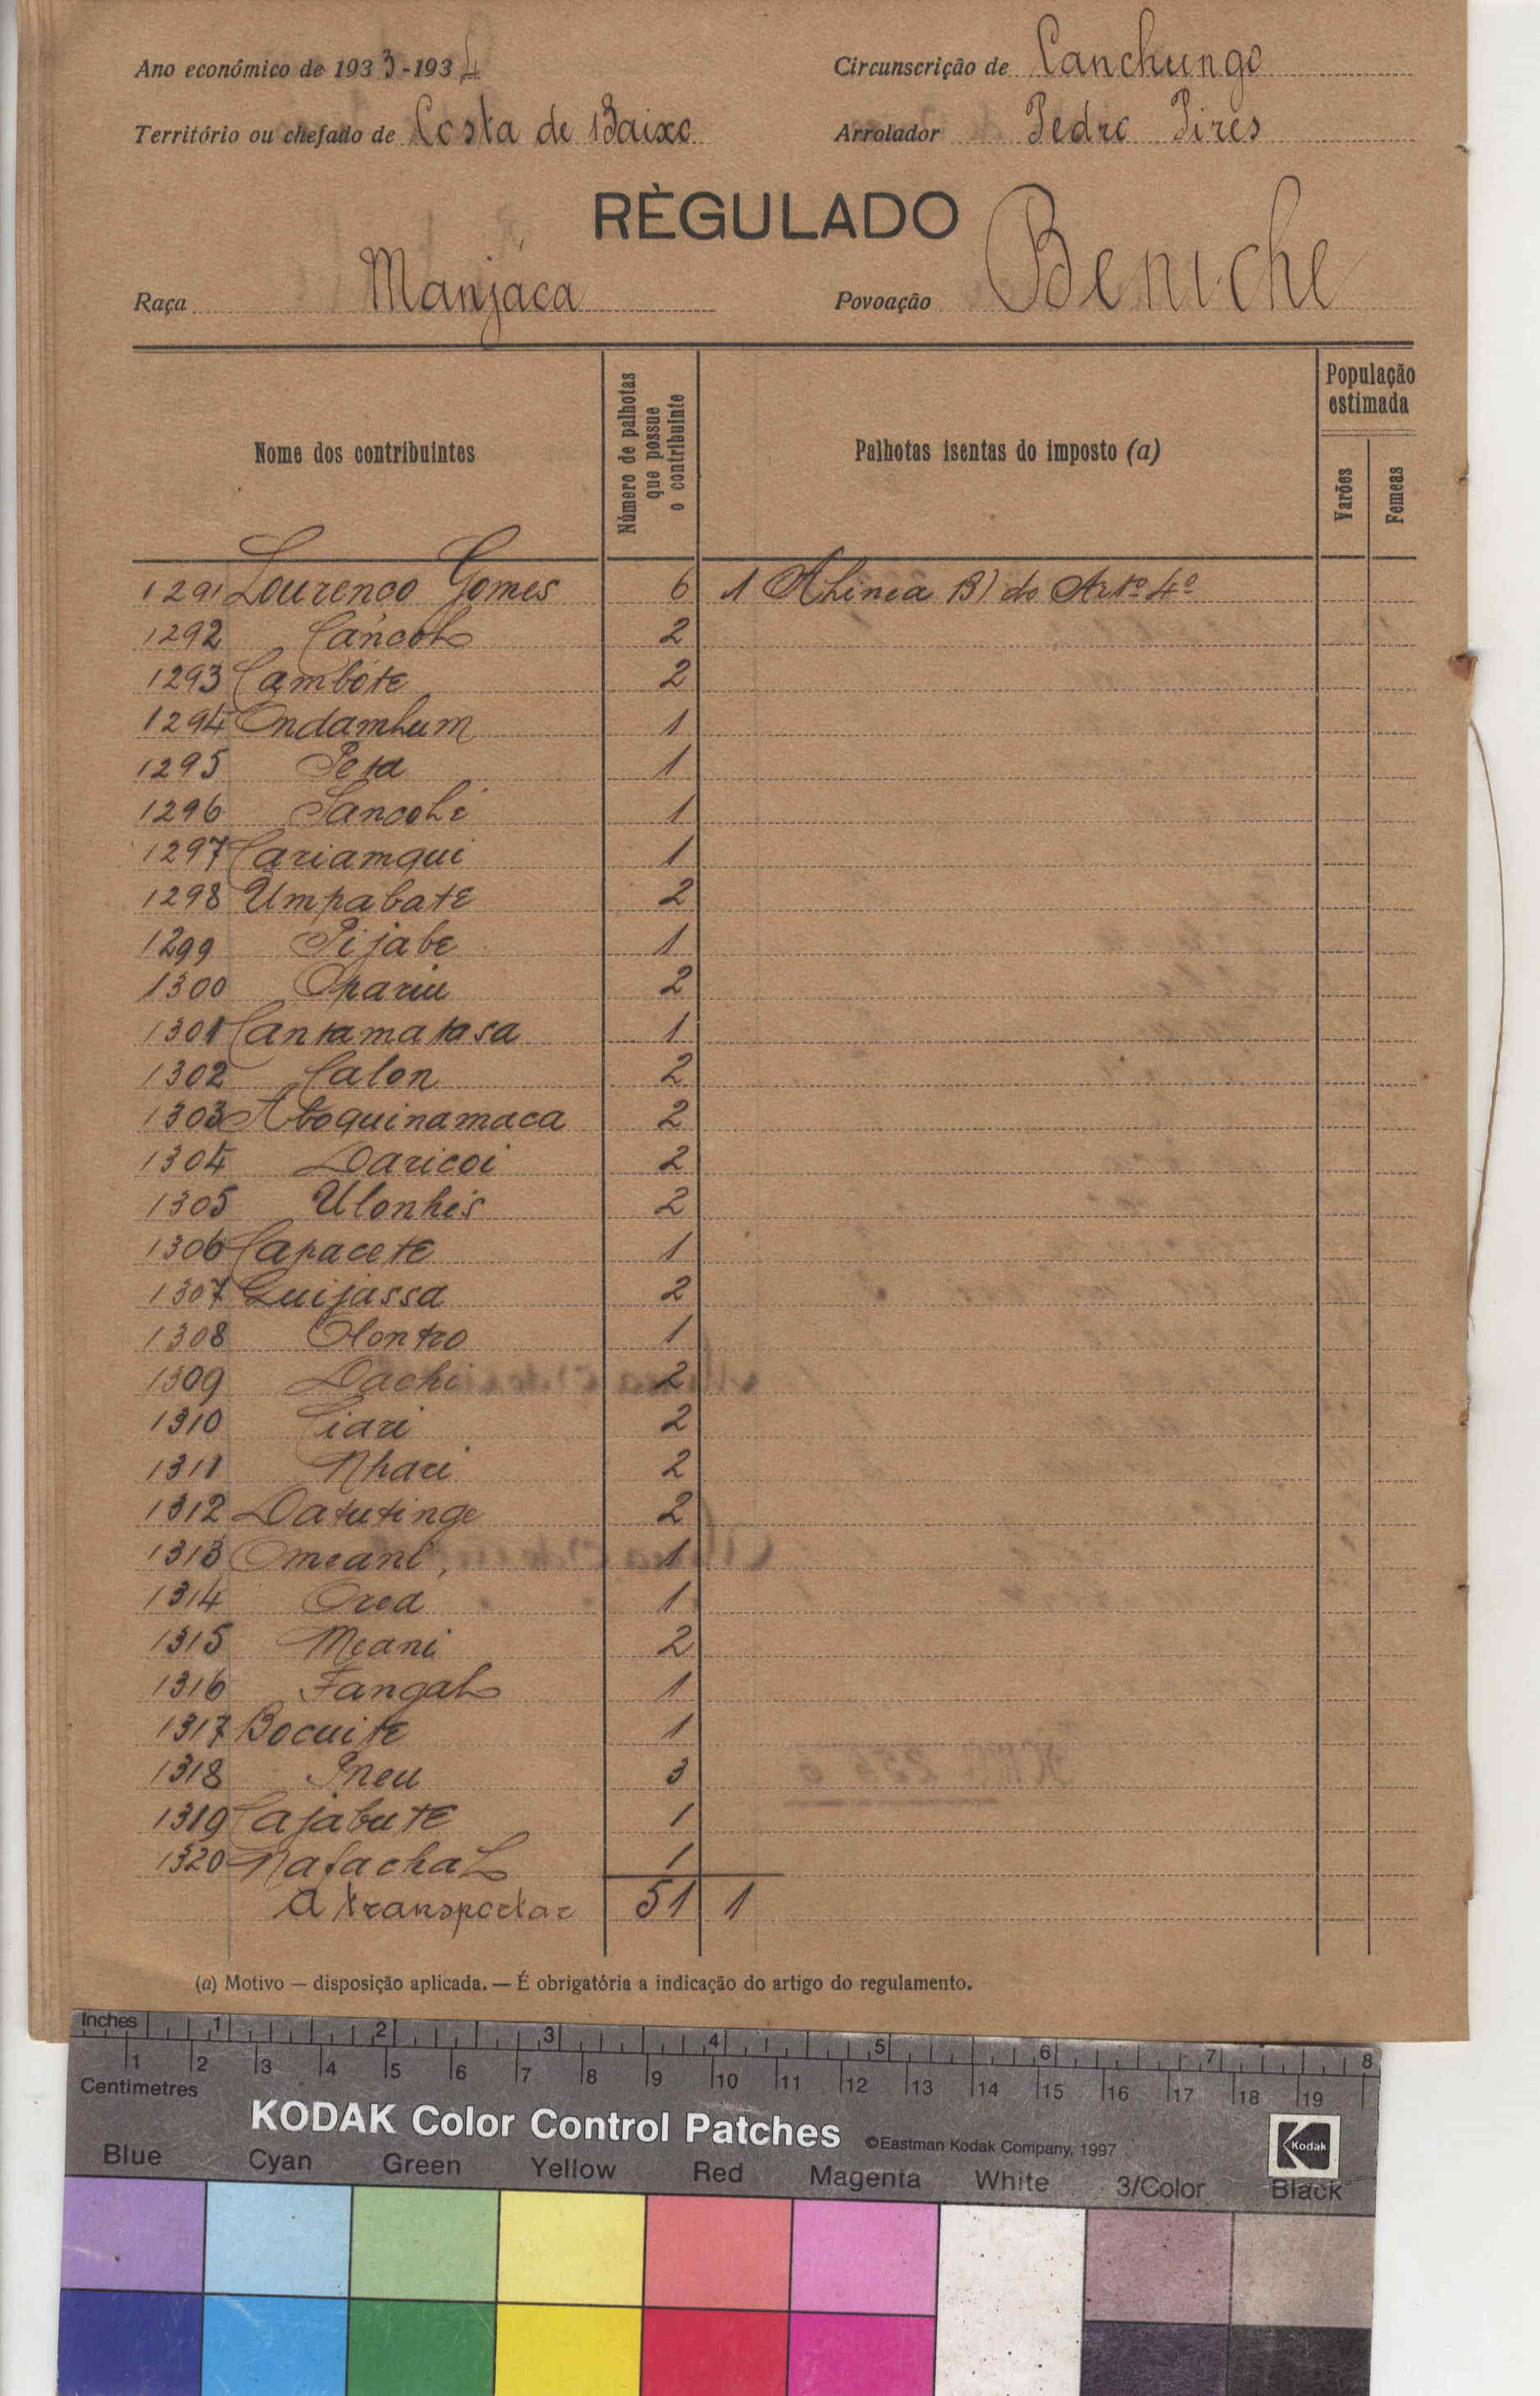 Ano económico de 1933-1934 Circunscrição de Canchungo
Território ou chefado de Costa de Baixo Arrolador Pedro Pires
RÈGULADO
Raça Manjáca Povoação Beniche
Nome dos contribuintes
Número de palhotas que possue o contribuinte
Palhotas isentas do imposto (a)
População estimada
Varões
Femeas
1291 Lourenco Gomes 6 1 Alinea B) do Artº 4º
1292 Cáncol 2
1293 Cambóte 2
1294 Ondamhum 1
1295 Peta 1
1296 Sancolé 1
1297 Cariamqui 1
1298 Umpabate 2
1299 Pijabe 1
1300 Opariu 2
1301 Cantamatasa 1
1302 Calon 2
1303 Atoquinamaca 2
1304 Daricoi 2
1305 Ulonhés 2
1306 Capacete 1
1307 Guijassa 2
1308 Olontro 1
1309 Dachi 2
1310 Ciari 2
1311 Nhari 2
1312 Datutinge 2
1313 Omeani 1
1314 Ored 1
1315 Meani 2
1316 Fangal 1
1317 Bocuite 1
1318 Pneu 3
1319 Cajabute 1
1320 Natachal 1
A transportar 51 1
(a) Motivo — disposição aplicada. — É obrigatória a indicação do artigo do regulamento.
Inches 1 2 3 4 5 6 7 8
1 2 3 4 5 6 7 8 9 10 11 12 13 14 15 16 17 18 19
Centimetres
KODAK Color Control Patches ©Eastman Kodak Company, 1997 Kodak
Blue Cyan Green Yellow Red Magenta White 3/Color Black